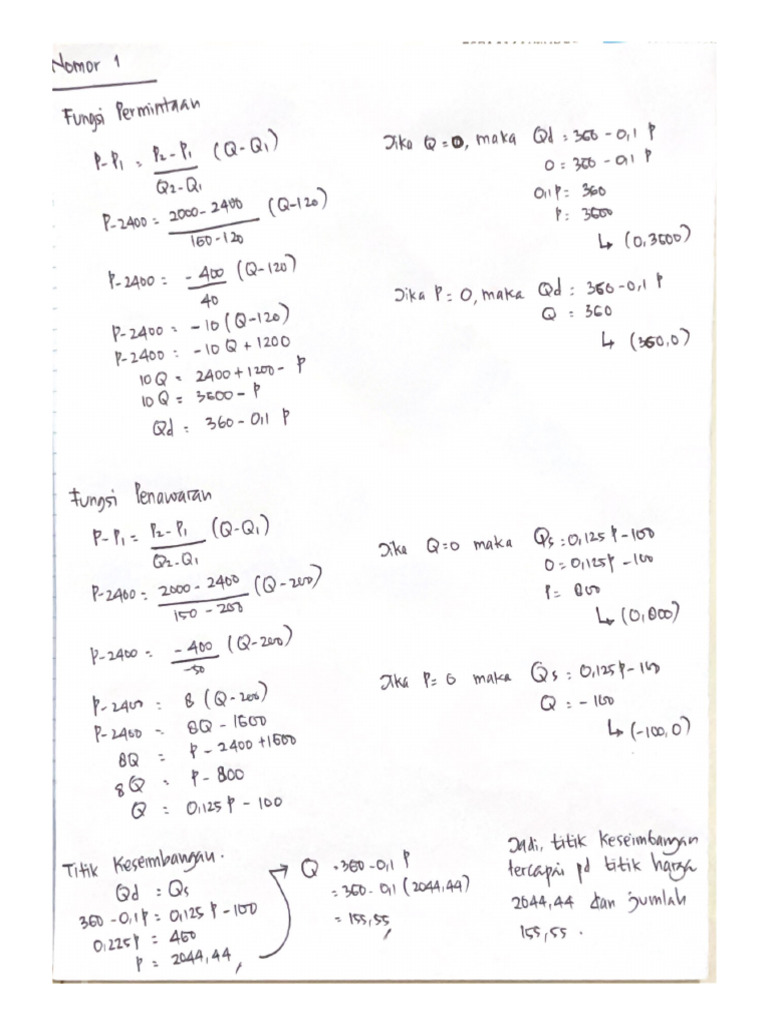 Nomor 1
Fungsi Permintaan
P-P₁ = P₂-P₁ / Q₂-Q₁ (Q-Q₁)
P-2400 = 2000-2400 / 160-120 (Q-120)
P-2400 = -400 / 40 (Q-120)
P-2400 = -10 (Q-120)
P-2400 = -10 Q + 1200
10 Q = 2400 + 1200 - P
10 Q = 3600 - P
Qd = 360 - 0,1 P
Jika Q = 0, maka Qd = 360 - 0,1 P
0 = 360 - 0,1 P
0,1 P = 360
P = 3600
↳ (0,3600)
Jika P = 0, maka Qd = 360 - 0,1 P
Q = 360
↳ (360,0)
Fungsi Penawaran
P-P₁ = P₂-P₁ / Q₂-Q₁ (Q-Q₁)
P-2400 = 2000-2400 / 150-200 (Q-200)
P-2400 = -400 / -50 (Q-200)
P-2400 = 8 (Q-200)
P-2400 = 8Q - 1600
8Q = P - 2400 + 1600
8Q = P - 800
Q = 0,125 P - 100
Jika Q=0 maka Qs = 0,125 P - 100
0 = 0,125 P - 100
P = 800
↳ (0,800)
Jika P=0 maka Qs = 0,125 P - 100
Q = -100
↳ (-100,0)
Titik Keseimbangan.
Qd = Qs
360 - 0,1 P = 0,125 P - 100
0,225 P = 460
P = 2044,44
→ Q = 360 - 0,1 P
= 360 - 0,1 (2044,44)
= 155,55
Jadi, titik Keseimbangan
tercapai pd titik harga
2044,44 dan jumlah
155,55.